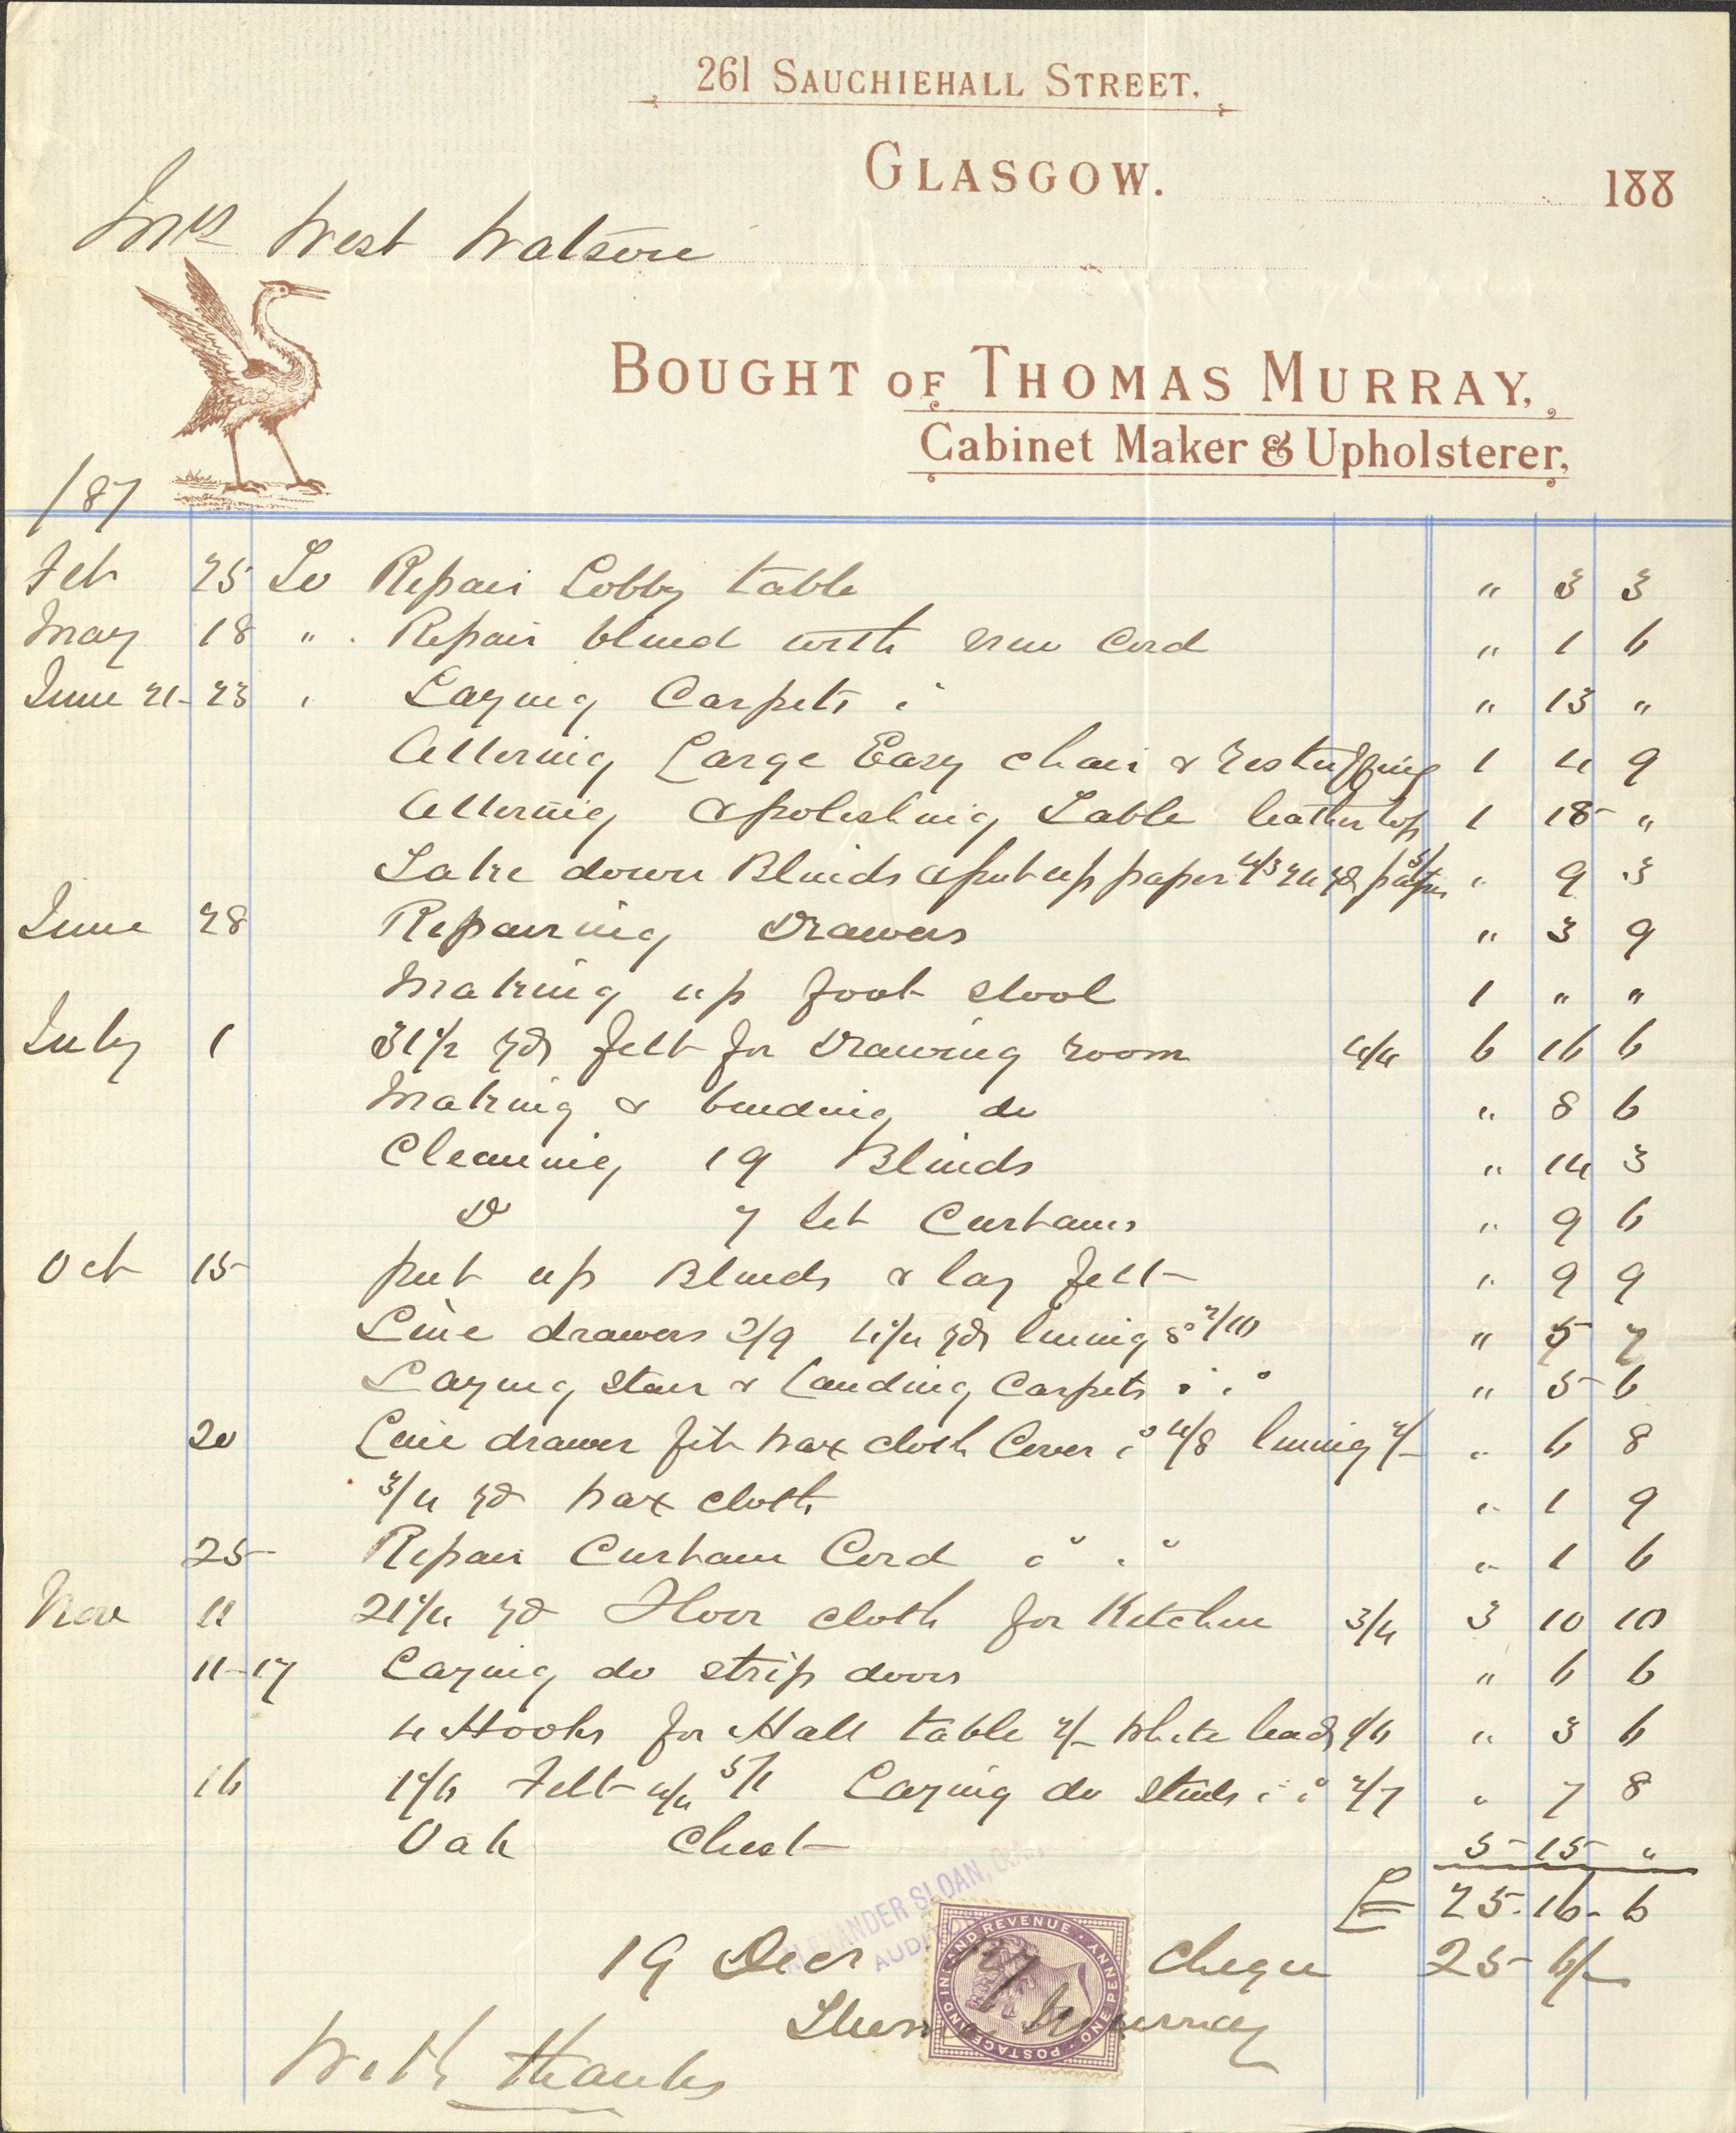 261 SAUCHIEHALL STREET.
GLASGOW. 188
Mrs West Watson
BOUGHT OF THOMAS MURRAY,
Cabinet Maker & Upholsterer,
/87
Feb 25 To Repair Lobby table " 3 3
May 18 " Repair blind with new Cord " 1 6
June 21-23 " Laying Carpets " 13 "
Altering Large Easy chair & restuffing 1 4 9
Altering & polishing Table leather top 1 18 "
Take down Blinds & put up paper 4/3 24 yds paper 5/ " 9 3
June 28 Repairing Drawers " 3 9
Making up foot stool 1 " "
July 1 31 1/2 yds felt for Drawing room 4/4 6 16 6
Making & binding do " 8 6
Cleaning 19 Blinds " 14 3
Do 7 Set Curtains " 9 6
Oct 15 put up Blinds & lay felt " 9 9
Line drawers 2/9 4 1/4 yds lining 8d 2/10 " 5 7
Laying stair & Landing Carpets " 5 6
20 Line drawer fit wax cloth Cover 4/8 lining 2/- " 6 8
3/4 yd wax cloth " 1 9
25 Repair Curtain Cord " 1 6
Nov 11 21 1/4 yd Floor cloth for Kitchen 3/4 3 10 10
11-17 Laying do strip doors " 6 6
4 Hooks for Hall table 2/- White leads 1/6 " 3 6
16 1 1/6 Felt 4/4 5/1 Laying do studs 2/7 " 7 8
Oak Chest 5 15 "
£ 25.16.6
ALEXANDER SLOAN,
19 Decr 87 Cheque 25 6/-
POSTAGE AND INLAND REVENUE · ONE PENNY ·
Thomas Murray
With thanks